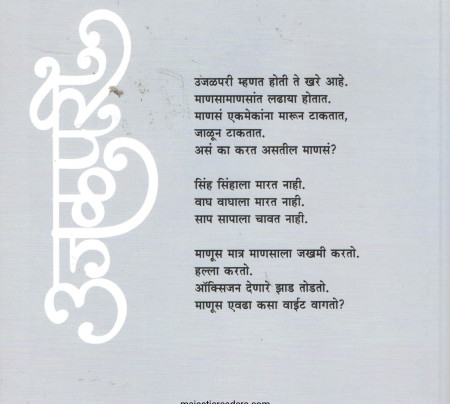 उजळपरी
उजळपरी म्हणत होती ते खरे आहे.
माणसामाणसांत लढाया होतात.
माणसं एकमेकांना मारून टाकतात,
जाळून टाकतात.
असं का करत असतील माणसं?
सिंह सिंहाला मारत नाही.
वाघ वाघाला मारत नाही.
साप सापाला चावत नाही.
माणूस मात्र माणसाला जखमी करतो.
हल्ला करतो.
ऑक्सिजन देणारे झाड तोडतो.
माणूस एवढा कसा वाईट वागतो?